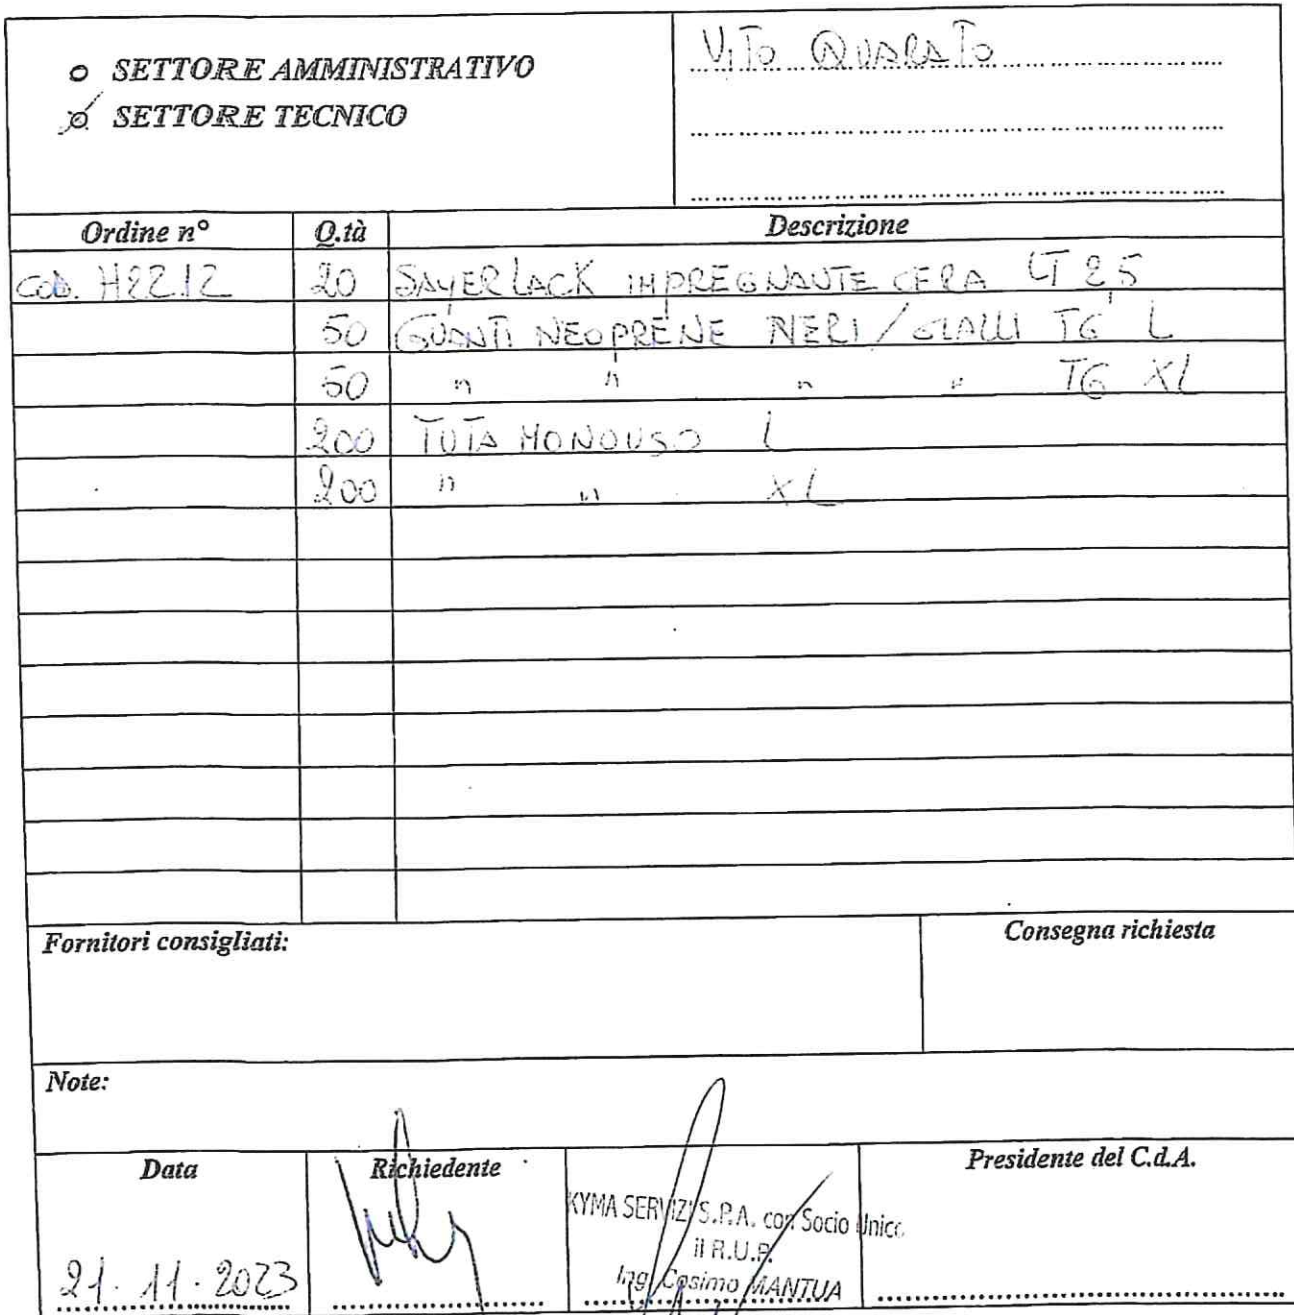 o SETTORE AMMINISTRATIVO
o SETTORE TECNICO
VITO QUARATO
Ordine n° Q.tà Descrizione
COD. H22.12 20 SAYERLACK IMPREGNANTE CERA LT 25
50 GUANTI NEOPRENE NERI/GIALLI TG L
50 " " " " TG XL
200 TUTA MONOUSO L
200 " " XL
Fornitori consigliati: Consegna richiesta
Note:
Data Richiedente Presidente del C.d.A.
KYMA SERVIZI S.P.A. con Socio Unico
il R.U.P.
Ing. Cosimo MANTUA
21.11.2023